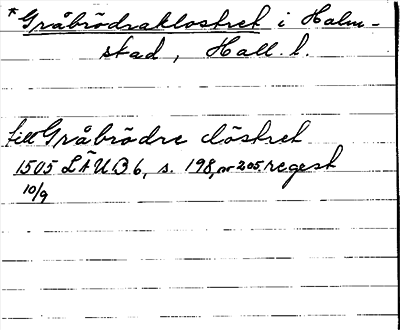 * Gråbrödraklostret i Halm-
stad, Hall. l.
till Gråbrödre clöstret
1505 LÄUB 6, s. 198, nr 205. regest
10/9